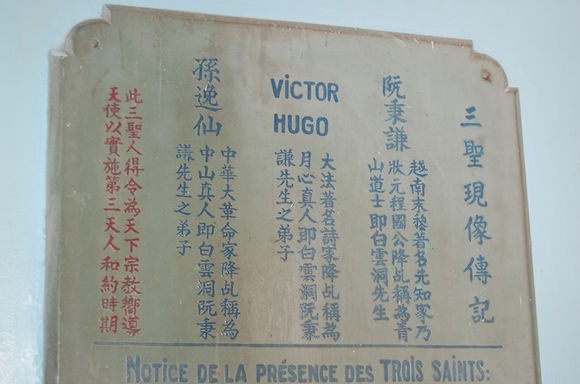 三聖現像傳記
阮秉謙
越南末黎著名先知家乃
狀元程國公降乩稱為青
山道士即白雲洞先生
VICTOR
HUGO
大法著名詩家降乩稱為
月心真人即白雲洞阮秉
謙先生之弟子
孫逸仙
中華大革命家降乩稱為
中山真人即白雲洞阮秉
謙先生之弟子
此三聖人得令為天下宗教嚮導
天使以實施第三天人和約時期
NOTICE DE LA PRÉSENCE DES TROIS SAINTS: